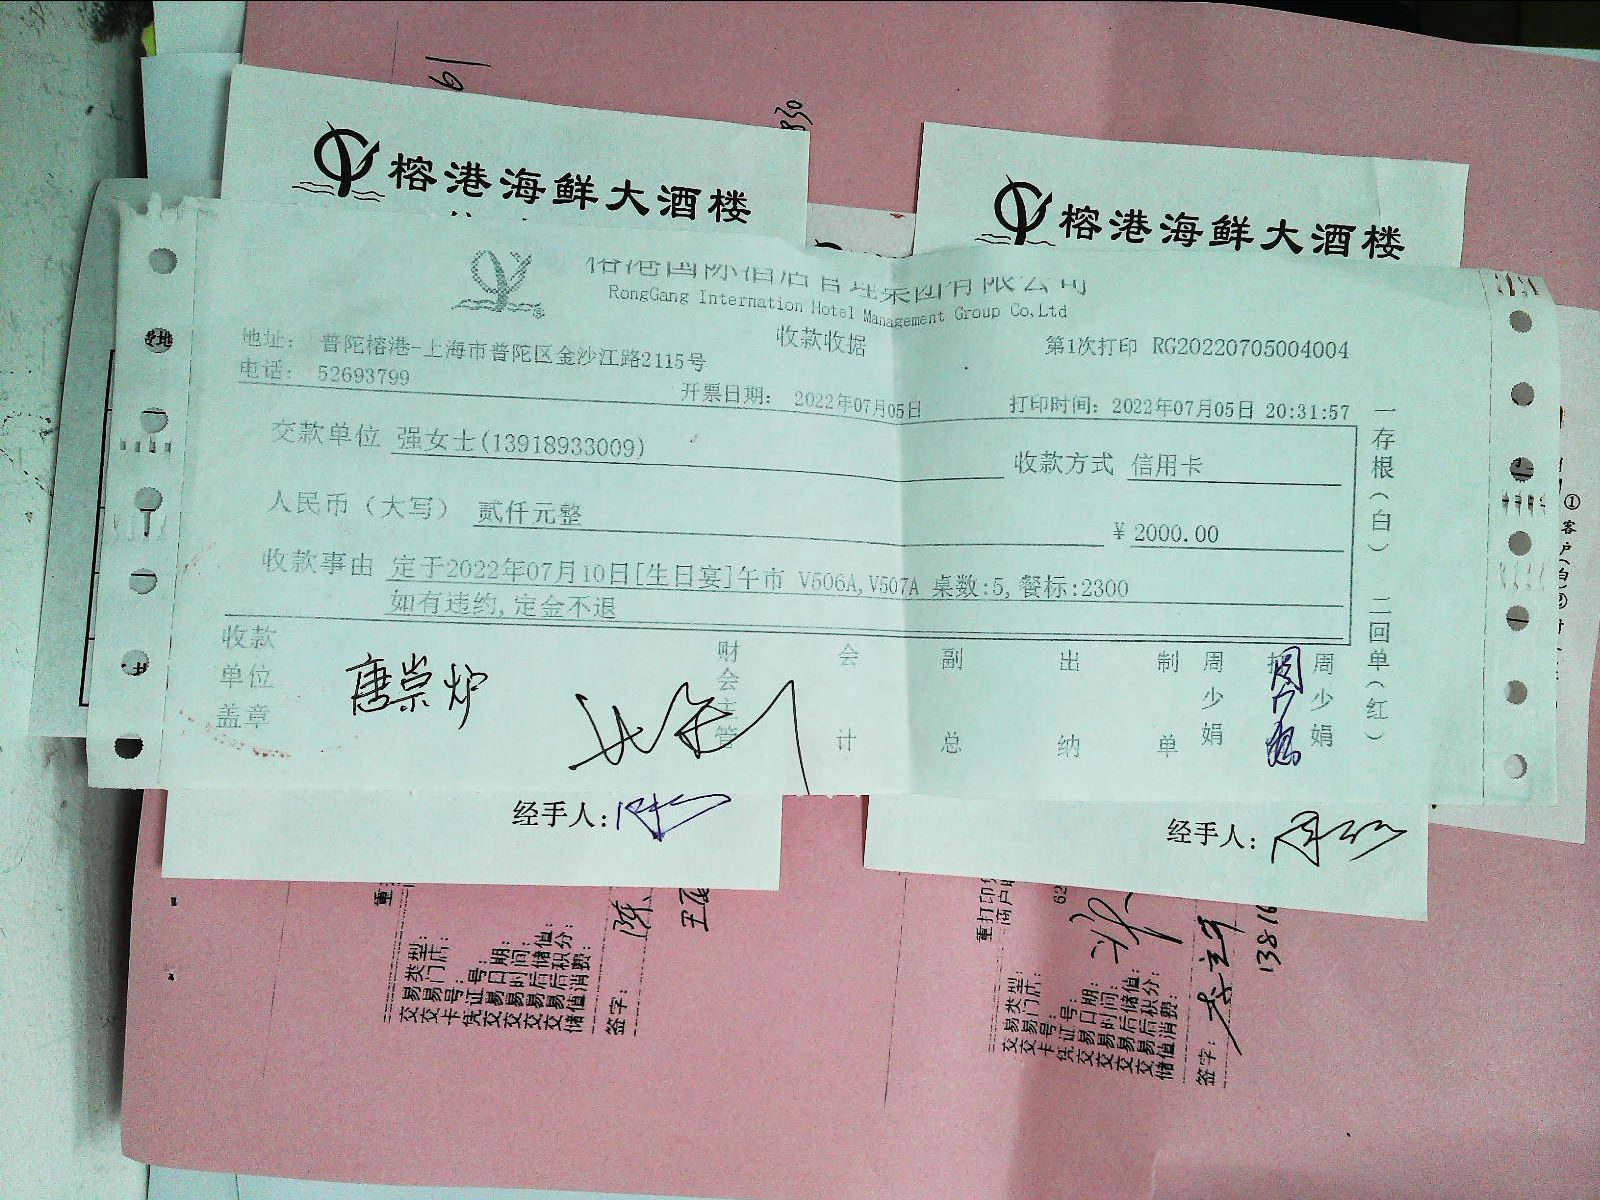 61
830
榕港海鲜大酒楼
榕港海鲜大酒楼
榕港国际酒店管理集团有限公司
RongGang Internation Hotel Management Group Co,Ltd
收款收据
地址： 普陀榕港-上海市普陀区金沙江路2115号
第1次打印 RG20220705004004
电话： 52693799
开票日期： 2022年07月05日
打印时间: 2022年07月05日 20:31:57
交款单位 强女士(13918933009)
收款方式 信用卡
人民币（大写） 贰仟元整
¥ 2000.00
收款事由 定于2022年07月10日[生日宴]午市 V506A,V507A 桌数:5,餐标:2300
如有违约,定金不退
收款单位盖章
唐崇炉
财会主管
会计
副总
出纳
制单
周少娟
周少娟
周少娟
一存根(白) 二回单(红)
① 客户(白)②
经手人:
经手人:
交易类型:
交易门店:
卡号:
凭证号:
交易日期:
交易时间:
交易后储值:
交易后积分:
储值消费:
签字:
陈
重打印
商户
62
交易类型:
交易门店:
卡号:
凭证号:
交易日期:
交易时间:
交易后储值:
交易后积分:
储值消费:
签字:
13816